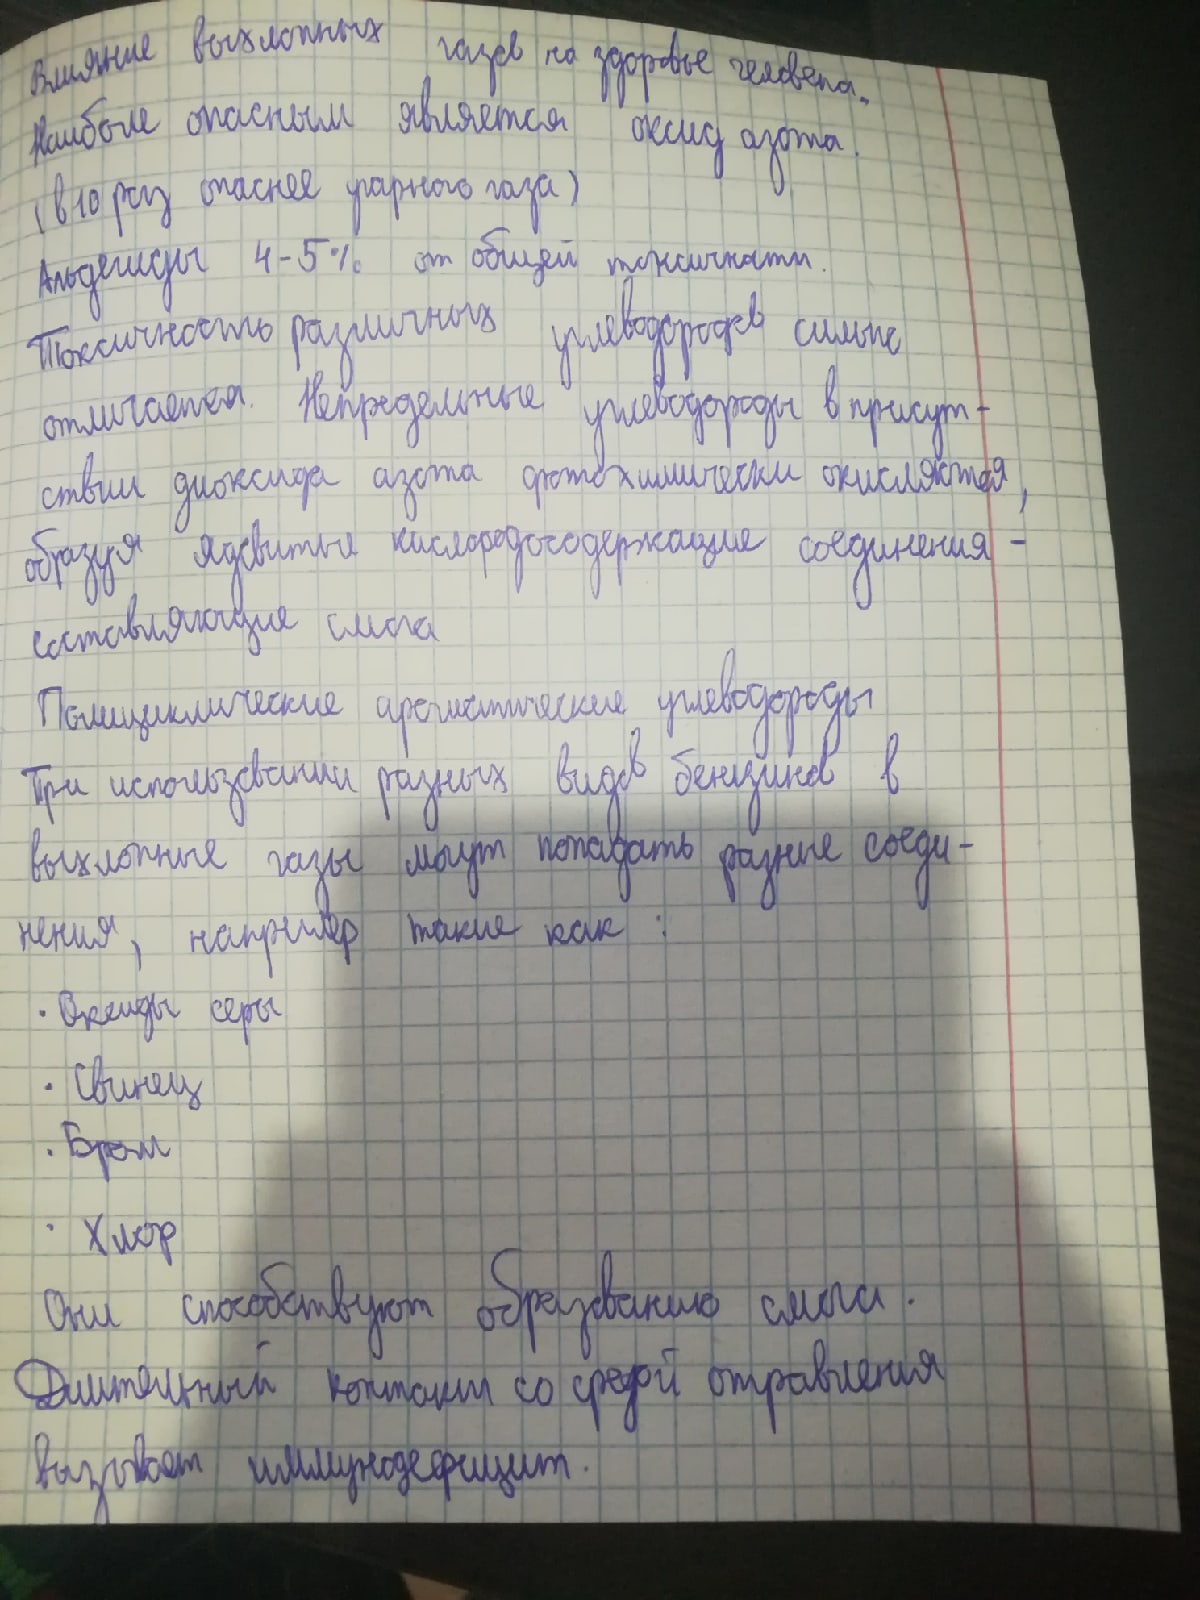 Влияние выхлопных газов на здоровье человека.
Наиболе опасным является оксид азота.
(в 10 раз опаснее угарного газа)
Альдегиды 4-5% от общей токсичности.
Токсичность различных углеводородов сильно
отличается. Непредельные углеводороды в присут-
ствии диоксида азота фотохимически окисляются,
образуя ядовитые кислородосодержащие соединения -
составляющие смога
Полициклические ароматические углеводороды
При использовании разных видов бензинов в
выхлопные газы могут попадать разные соеди-
нения, например такие как :
· Оксиды серы
· Свинец
· Бром
· Хлор
Они способствуют образованию смога.
Длительный контакт со средой отравления
вызывает иммунодефицит.